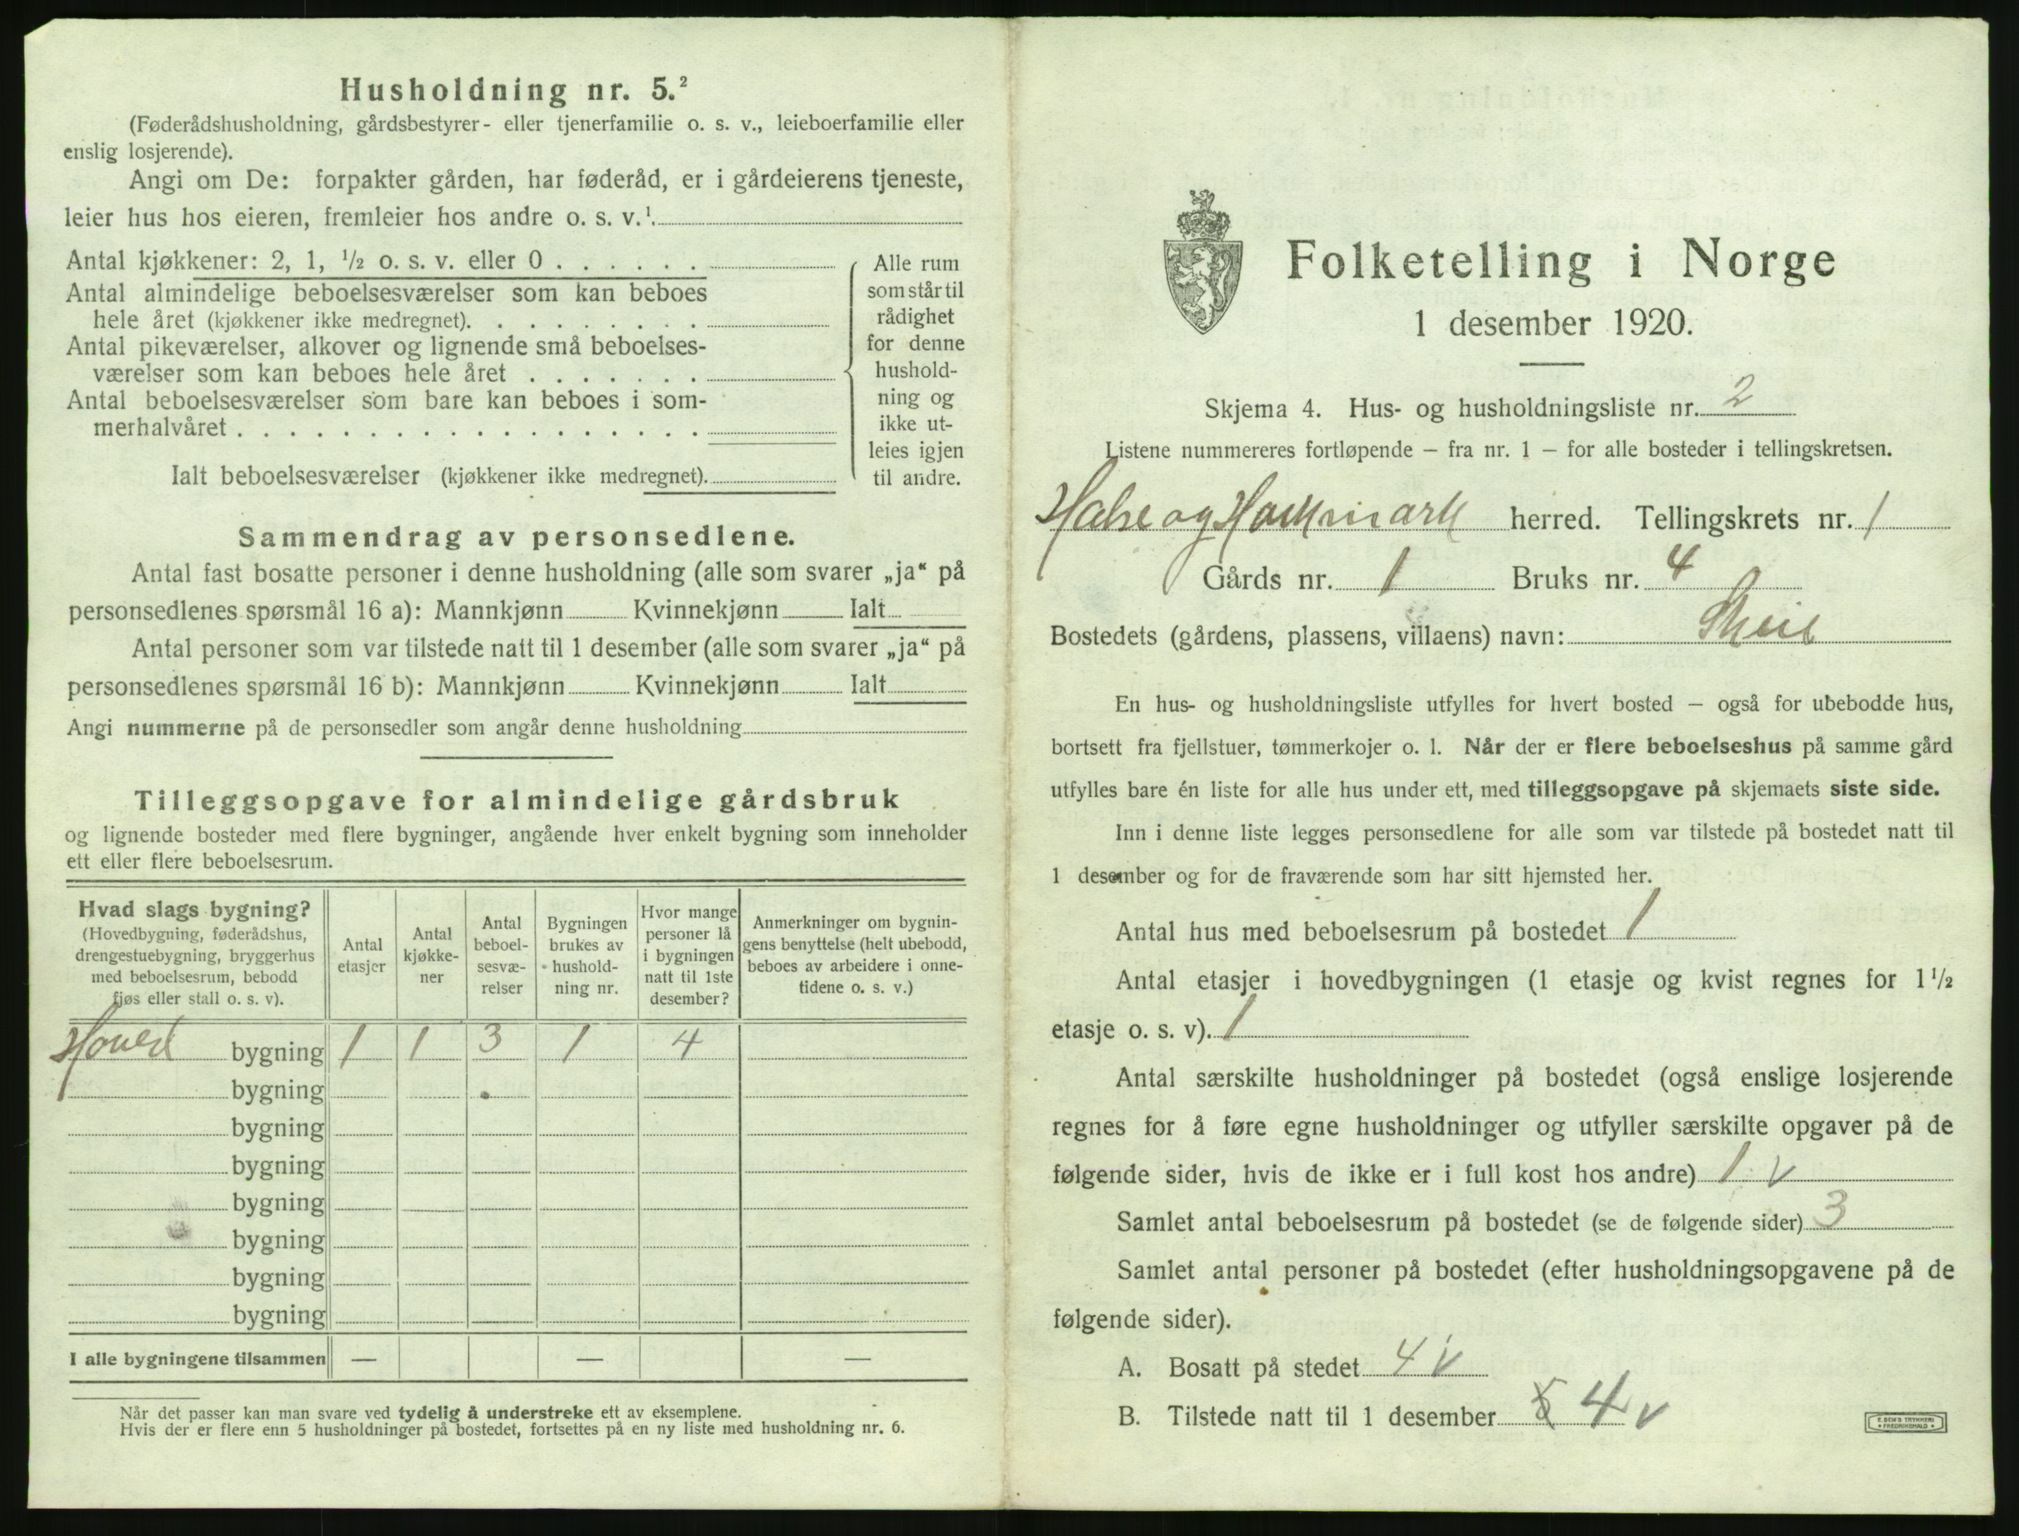 Husholdning nr. 5.²
(Føderådshusholdning, gårdsbestyrer- eller tjenerfamilie o. s. v., leieboerfamilie eller
enslig losjerende).
Angi om De: forpakter gården, har føderåd, er i gårdeierens tjeneste,
leier hus hos eieren, fremleier hos andre o. s. v.¹
Antal kjøkkener: 2, 1, ½ o. s. v. eller 0
Antal almindelige beboelsesværelser som kan beboes
hele året (kjøkkener ikke medregnet).
Antal pikeværelser, alkover og lignende små beboelses-
værelser som kan beboes hele året
Antal beboelsesværelser som bare kan beboes i som-
merhalvåret
Ialt beboelsesværelser (kjøkkener ikke medregnet).
Alle rum
som står til
rådighet
for denne
hushold-
ning og
ikke ut-
leies igjen
til andre.
Sammendrag av personsedlene.
Antal fast bosatte personer i denne husholdning (alle som svarer „ja“ på
personsedlenes spørsmål 16 a): Mannkjønn Kvinnekjønn Ialt
Antal personer som var tilstede natt til 1 desember (alle som svarer „ja“ på
personsedlenes spørsmål 16 b): Mannkjønn Kvinnekjønn Ialt
Angi nummerne på de personsedler som angår denne husholdning
Tilleggsopgave for almindelige gårdsbruk
og lignende bosteder med flere bygninger, angående hver enkelt bygning som inneholder
ett eller flere beboelsesrum.
Hvad slags bygning?
(Hovedbygning, føderådshus,
drengestuebygning, bryggerhus
med beboelsesrum, bebodd
fjøs eller stall o. s. v).
Antal
etasjer
Antal
kjøkke-
ner
Antal
beboel-
sesvæ-
relser
Bygningen
brukes av
hushold-
ning nr.
Hvor mange
personer lå
i bygningen
natt til 1ste
desember?
Anmerkninger om bygnin-
gens benyttelse (helt ubebodd,
beboes av arbeidere i onne-
tidene o. s. v.)
Hoved bygning 1 1 3 1 4
bygning
bygning
bygning
bygning
bygning
bygning
bygning
I alle bygningene tilsammen — — —
Når det passer kan man svare ved tydelig å understreke ett av eksemplene.
Hvis der er flere enn 5 husholdninger på bostedet, fortsettes på en ny liste med husholdning nr. 6.
Folketelling i Norge
1 desember 1920.
Skjema 4. Hus- og husholdningsliste nr. 2
Listene nummereres fortløpende — fra nr. 1 — for alle bosteder i tellingskretsen.
Halse og Harkmark herred. Tellingskrets nr. 1
Gårds nr. 1 Bruks nr. 4
Bostedets (gårdens, plassens, villaens) navn: Skeie
En hus- og husholdningsliste utfylles for hvert bosted — også for ubebodde hus,
bortsett fra fjellstuer, tømmerkojer o. l. Når der er flere beboelseshus på samme gård
utfylles bare én liste for alle hus under ett, med tilleggsopgave på skjemaets siste side.
Inn i denne liste legges personsedlene for alle som var tilstede på bostedet natt til
1 desember og for de fraværende som har sitt hjemsted her.
Antal hus med beboelsesrum på bostedet 1
Antal etasjer i hovedbygningen (1 etasje og kvist regnes for 1½
etasje o. s. v). 1
Antal særskilte husholdninger på bostedet (også enslige losjerende
regnes for å føre egne husholdninger og utfyller særskilte opgaver på de
følgende sider, hvis de ikke er i full kost hos andre) 1 v
Samlet antal beboelsesrum på bostedet (se de følgende sider) 3
Samlet antal personer på bostedet (efter husholdningsopgavene på de
følgende sider).
A. Bosatt på stedet 4 v
B. Tilstede natt til 1 desember 4 v
E. SEM'S TRYKKERI
FREDRIKSHALD